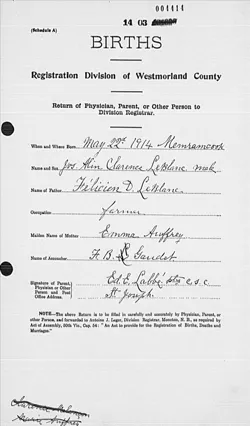 004414
14 03
(Schedule A)
BIRTHS
Registration Division of Westmorland County
Return of Physician, Parent, or Other Person to
Division Registrar.
When and Where Born May 22d 1914 Memramcook
Name and Sex Jos Clarence LeBlanc male
Name of Father Félicien D. LeBlanc
Occupation farmer
Maiden Name of Mother Emma Auffrey
Name of Accoucher F. B. Gaudet
Signature of Parent,
Physician or Other
Person and Post
Office Address.
Ed. E. Labbé c.s.c
St. Joseph
NOTE.—The above Return is to be filled carefully and accurately by Physician, Parent, or
other Person, and forwarded to Antoine J. Leger, Division Registrar, Moncton, N. B., as required by
Act of Assembly, 50th Vic., Cap. 54: "An Act to provide for the Registration of Births, Deaths and
Marriages."